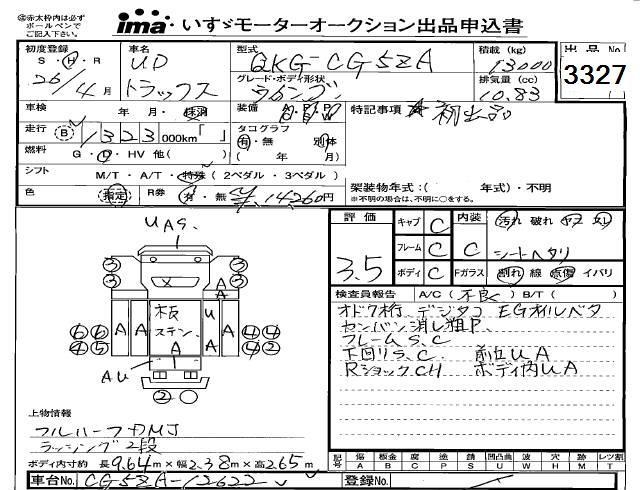 ㊟赤太枠内は必ず
ボールペンで
ご記入下さい。
ima いすゞモーターオークション出品申込書
初度登録 車名 型式 積載 (kg) 出品No
S・H・R UD QKG-CG5ZA 13000
26/4月 トラックス グレード・ボディ形状 排気量 (cc) 3327
10.83
車検 年 月・抹消 装備 A・P・W 特記事項 初出品
走行 B 1323000km「 」 タコグラフ
有・無 別体
燃料 G・D・HV 他( ) ( 年 月)
シフト M/T・A/T・特殊 ( 2ペダル・3ペダル ) 架装物年式:( 年式)・不明
※不明の場合は、不明に○をする。
色 指定 R券 有・無 ¥14,260円
UAS.
評価 キャブ C 内装 汚れ 破れ ヤブ スレ
3.5 フレーム C C シートヘタリ
ボディ C Fガラス 割れ 線 点傷 イバリ
検査員報告 A/C ( 不良 ) B/T ( )
オドク桁 デジタコ EGオイルベタ
センバン消し粗P
フレームS.C
下回りS.C. 前立UA
RショックCH ボディ内UA
3 3
3 3
A
A
6 6 A A 板 U A A 4 4
4 5 ステン 4 2
A
AU
2
上物情報
フルハーフDMJ
ラッシング2段
ボディ内寸約 長9.64m×幅2.38m×高2.65m
記号 傷 板金 腐 塗 錆 凹凸曲 波 穴 跡 レツ割
A B C P S U W H M T
車台No. CG5ZA-12622 登録No.